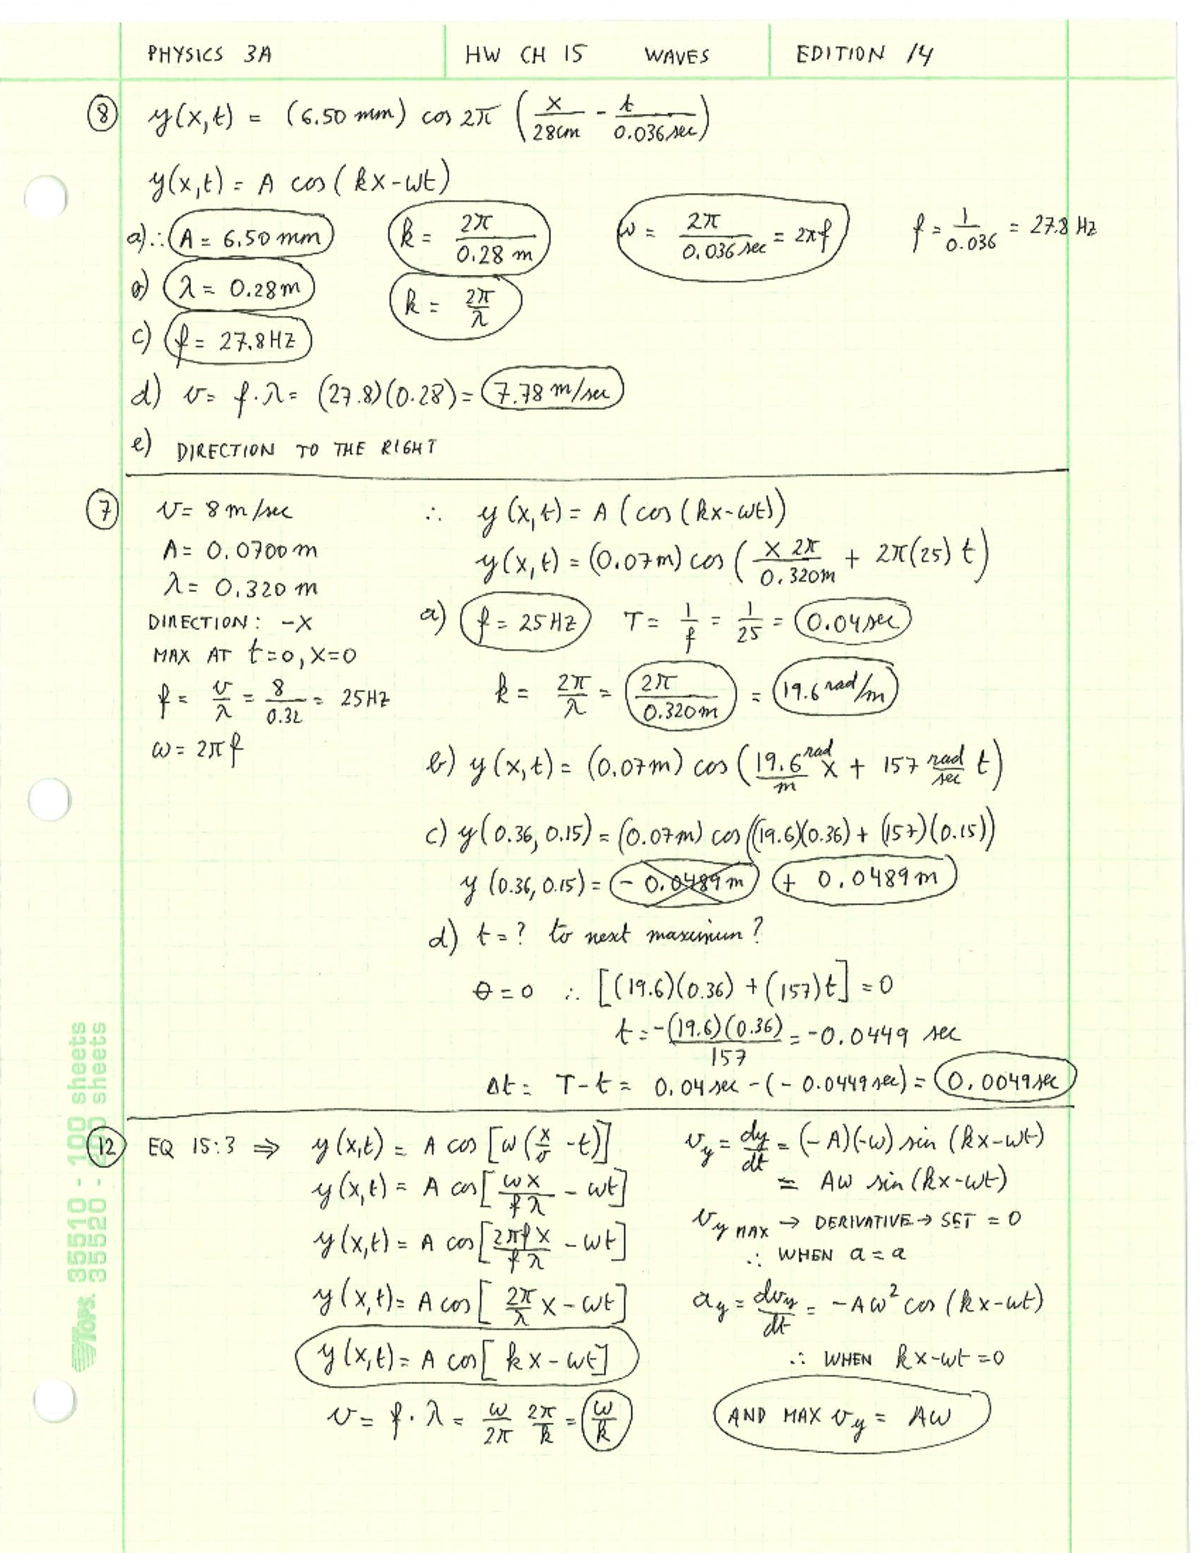 PHYSICS 3A HW CH 15 WAVES EDITION 14
8 y(x,t) = (6.50 mm) cos 2π (x/28cm - t/0.036 sec)
y(x,t) = A cos (kx-ωt)
a) ∴ A = 6.50 mm k = 2π/0.28 m ω = 2π/0.036 sec = 2πf f = 1/0.036 = 27.8 Hz
b) λ = 0.28 m k = 2π/λ
c) f = 27.8 HZ
d) v = f·λ = (27.8)(0.28) = 7.78 m/sec
e) DIRECTION TO THE RIGHT
7 v = 8 m/sec
A = 0.0700 m
λ = 0.320 m
DIRECTION: -X
MAX AT t=0, X=0
f = v/λ = 8/0.32 = 25 HZ
ω = 2πf
∴ y(x,t) = A (cos (kx-ωt))
y(x,t) = (0.07m) cos (x 2π/0.320m + 2π(25) t)
a) f = 25 HZ T = 1/f = 1/25 = 0.04 sec
k = 2π/λ = 2π/0.320m = 19.6 rad/m
b) y(x,t) = (0.07m) cos (19.6 rad/m x + 157 rad/sec t)
c) y(0.36, 0.15) = (0.07m) cos ((19.6)(0.36) + (157)(0.15))
y(0.36, 0.15) = - 0.0489 m + 0.0489 m
d) t = ? to next maximum?
θ = 0 ∴ [(19.6)(0.36) + (157)t] = 0
t = -(19.6)(0.36)/157 = -0.0449 sec
Δt = T - t = 0.04 sec - (-0.0449 sec) = 0.0049 sec
12 EQ 15:3 ⇒ y(x,t) = A cos [ω (x/v - t)]
y(x,t) = A cos [ωx/fλ - ωt]
y(x,t) = A cos [2πfx/fλ - ωt]
y(x,t) = A cos [2π/λ x - ωt]
y(x,t) = A cos [kx - ωt]
v = f·λ = ω/2π 2π/k = ω/k
v_y = dy/dt = (-A)(-ω) sin (kx-ωt)
= Aω sin (kx-ωt)
v_y MAX → DERIVATIVE → SET = 0
∴ WHEN a = a
a_y = dv_y/dt = -Aω² cos (kx-ωt)
∴ WHEN kx-ωt = 0
AND MAX v_y = Aω
TOPS 35510 - 100 sheets
35520 - 200 sheets